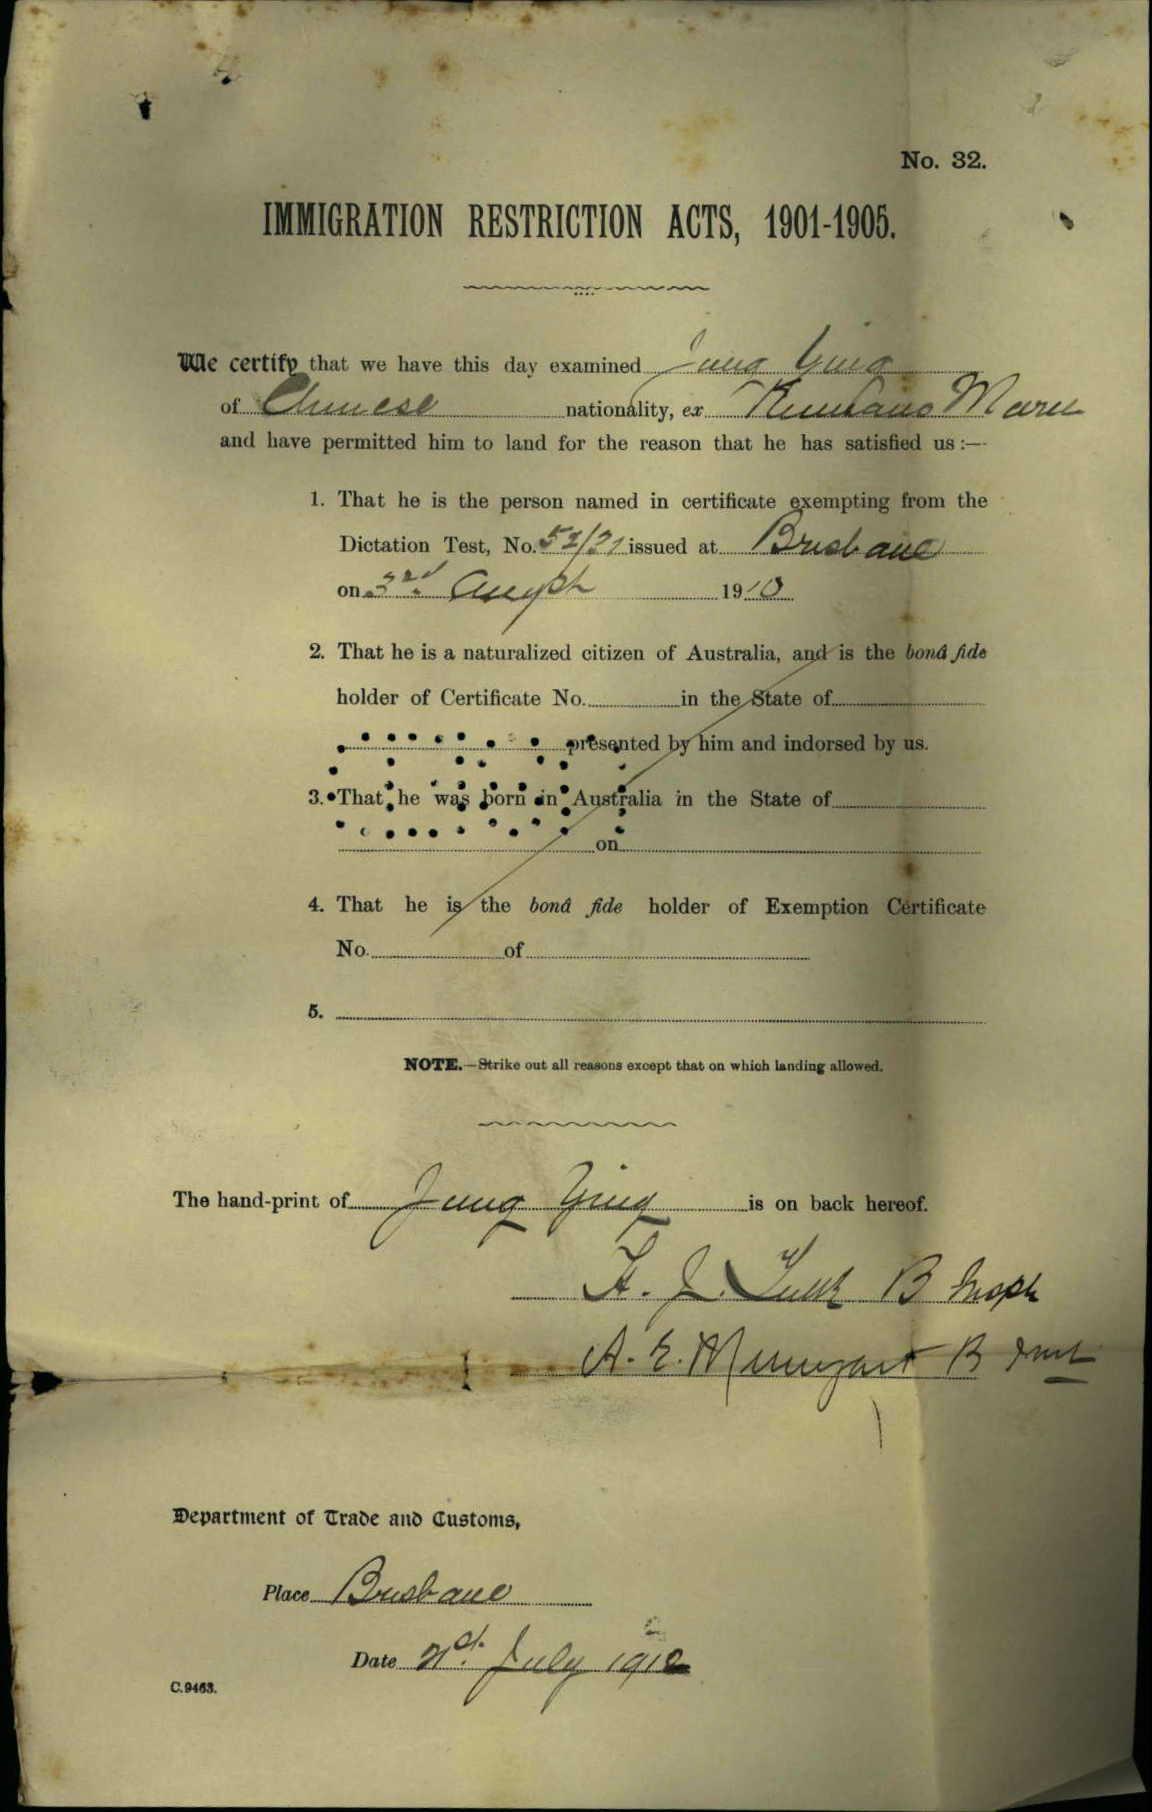 No. 32.
IMMIGRATION RESTRICTION ACTS, 1901-1905.
We certify that we have this day examined Jung Ying
of Chinese nationality, ex Kumano Maru
and have permitted him to land for the reason that he has satisfied us :—
1. That he is the person named in certificate exempting from the
Dictation Test, No. issued at Brisbane
on 3rd Augst 1910
2. That he is a naturalized citizen of Australia, and is the bonâ fide
holder of Certificate No. in the State of
presented by him and indorsed by us.
3. That he was born in Australia in the State of
on
4. That he is the bonâ fide holder of Exemption Certificate
No. of
5.
NOTE.—Strike out all reasons except that on which landing allowed.
The hand-print of Jung Ying is on back hereof.
H. J. B Inspr
A. E. B
Department of Trade and Customs,
Place Brisbane
Date July 1912
C.9463.